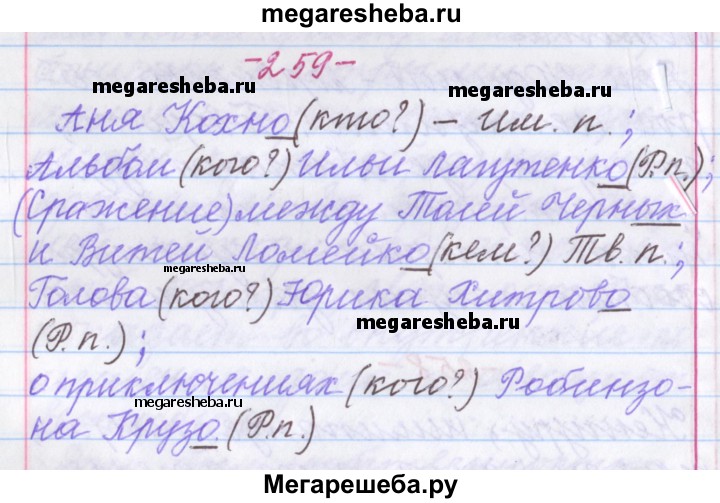 megaresheba.ru
-259-
megaresheba.ru
megaresheba.ru
Аня Кохно (кто?) – Им. п.;
Альбом (кого?) Ильи Лагутенко (Р.п.);
(Сражение) между Толей Черных
и Витей Ломейко (кем?) Тв. п.;
megaresheba.ru
Голова (кого?) Юрика Хитрово
megaresheba.ru
(Р.п.);
о приключениях (кого?) Робинзо-
megaresheba.ru
на Крузо. (Р.п.)
Мегарешеба.ру